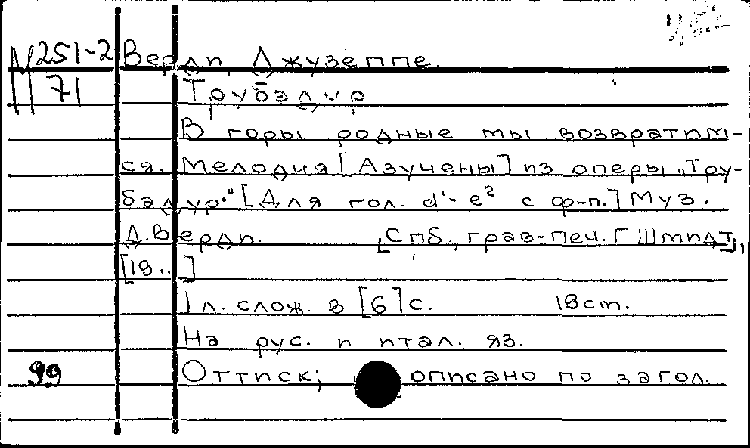 М 251-2 Верди, Джузеппе.
71 Трубадур
В горы родные мы возвратим-
ся. Мелодия [Азучены] из оперы „Тру-
бадур." [Для гол. d'- e² с ф-п.] Муз.
Д. Верди. [Спб., грав-печ. Г Шмидт,
[18..]
1 л. слож. в [6] с. 18 ст.
На рус. и итал. яз.
99 Оттиск; описано по загол.